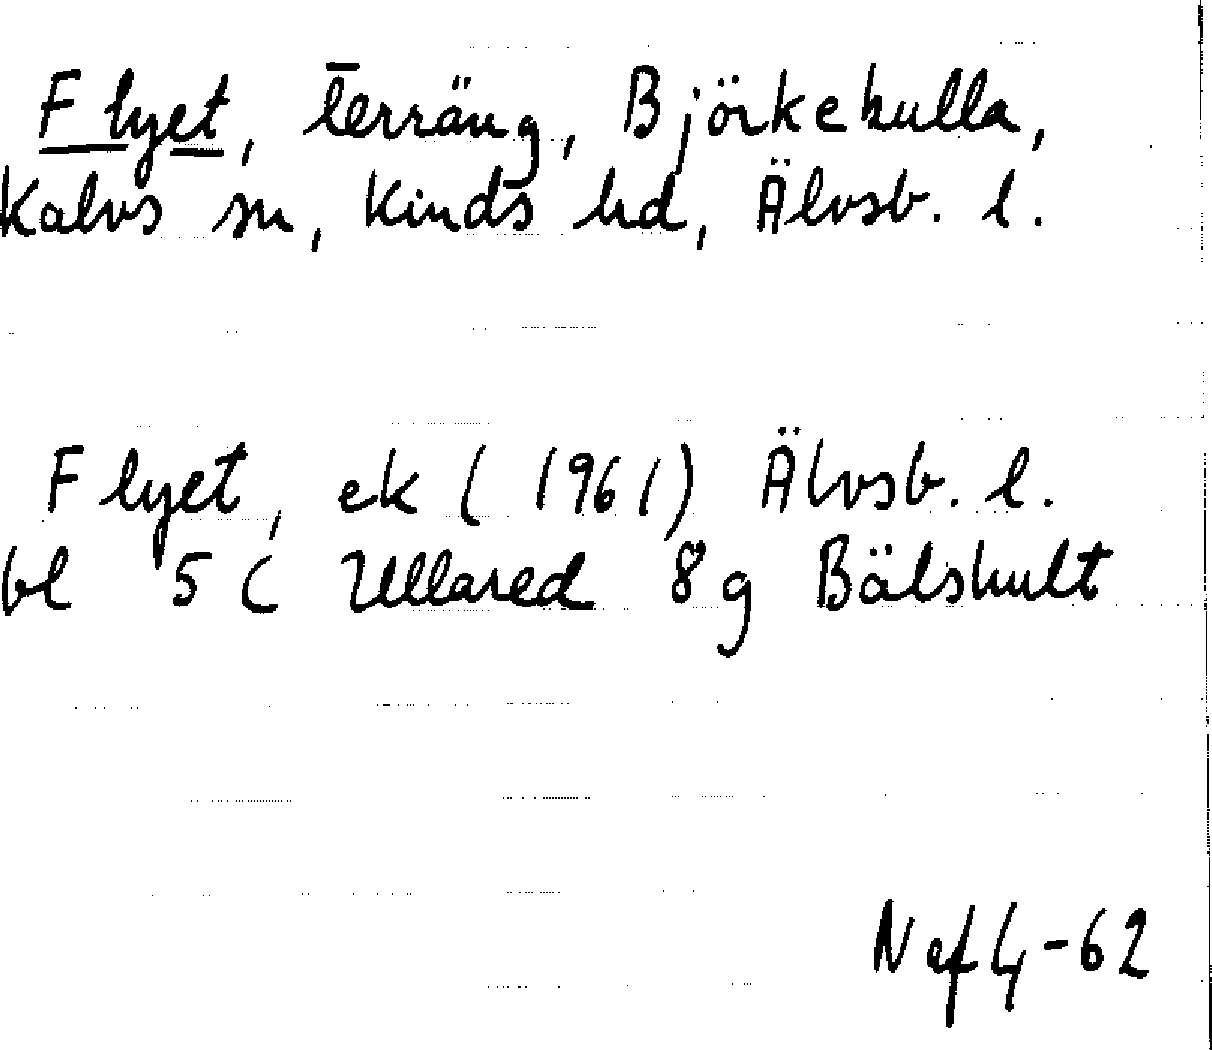 Flyet, terräng, Björkekulla,
Kalvs sn, Kinds hd, Älvsb. l.
Flyet, ek (1961) Älvsb. l.
bl 5 C Ullared 8 g Bälshult
Naf 4-62